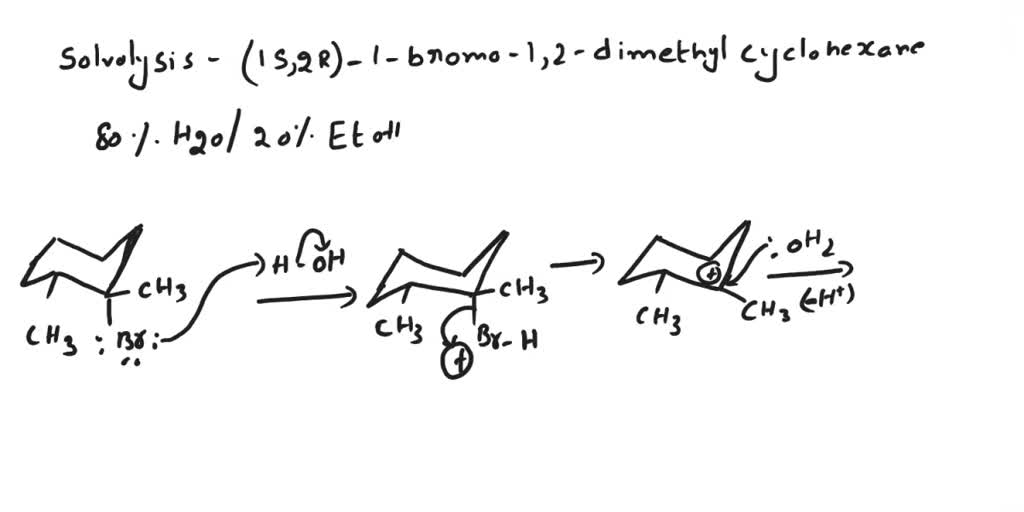 Solvolysis - (1S,2R)-1-bromo-1,2-dimethyl cyclohexane
80%. H2O/20% EtOH
CH3
CH3 :Br:
H OH
CH3
CH3 Br-H
+
+
CH3
CH3
:OH2
(-H+)